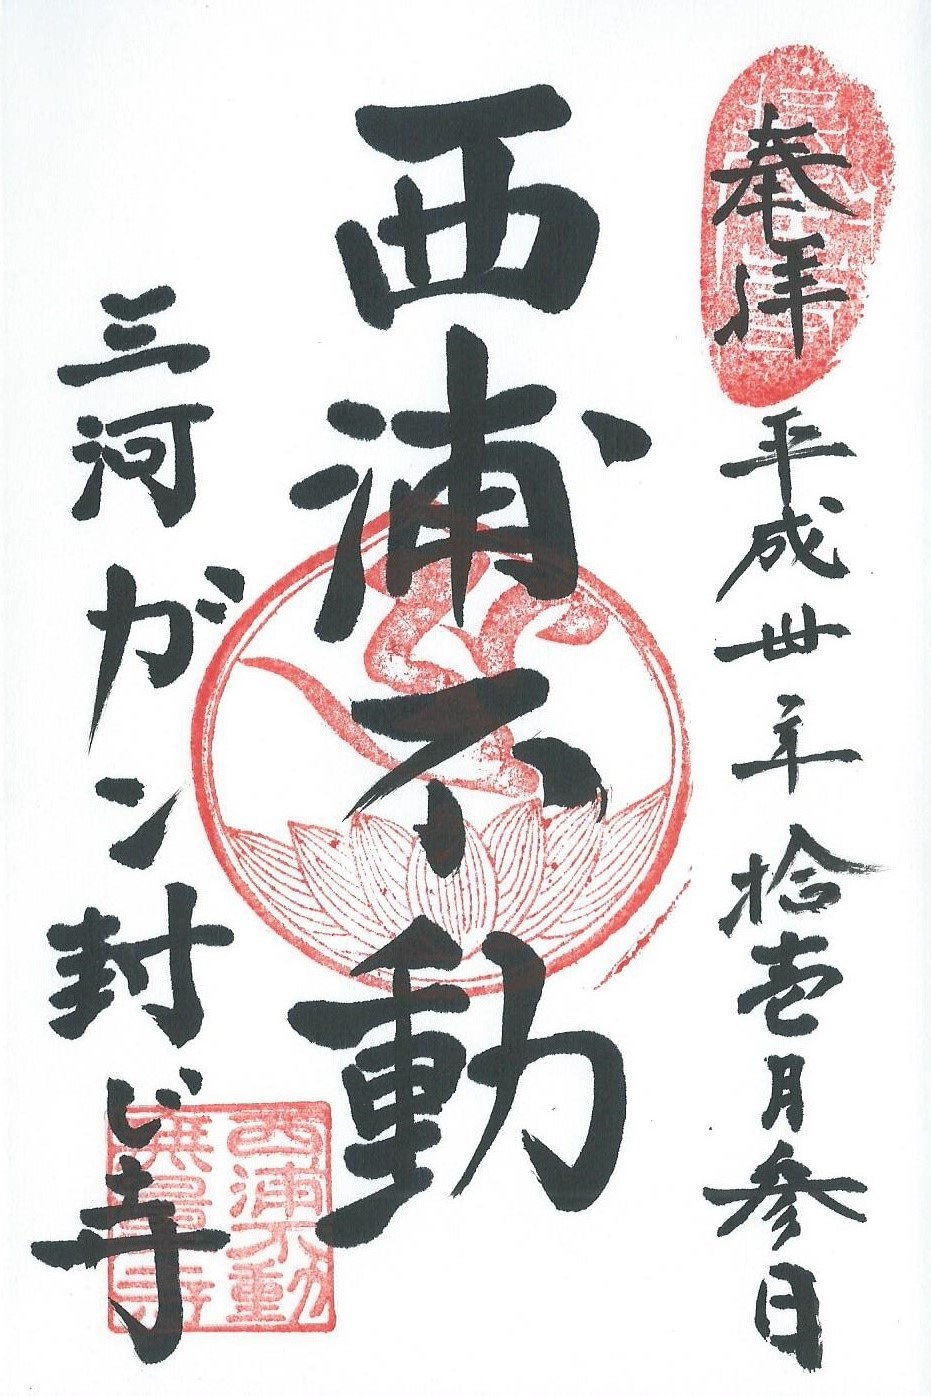 奉拝
平成丗年拾壱月参日
西浦不動
三河ガン封じ寺
西浦不動
無量寺